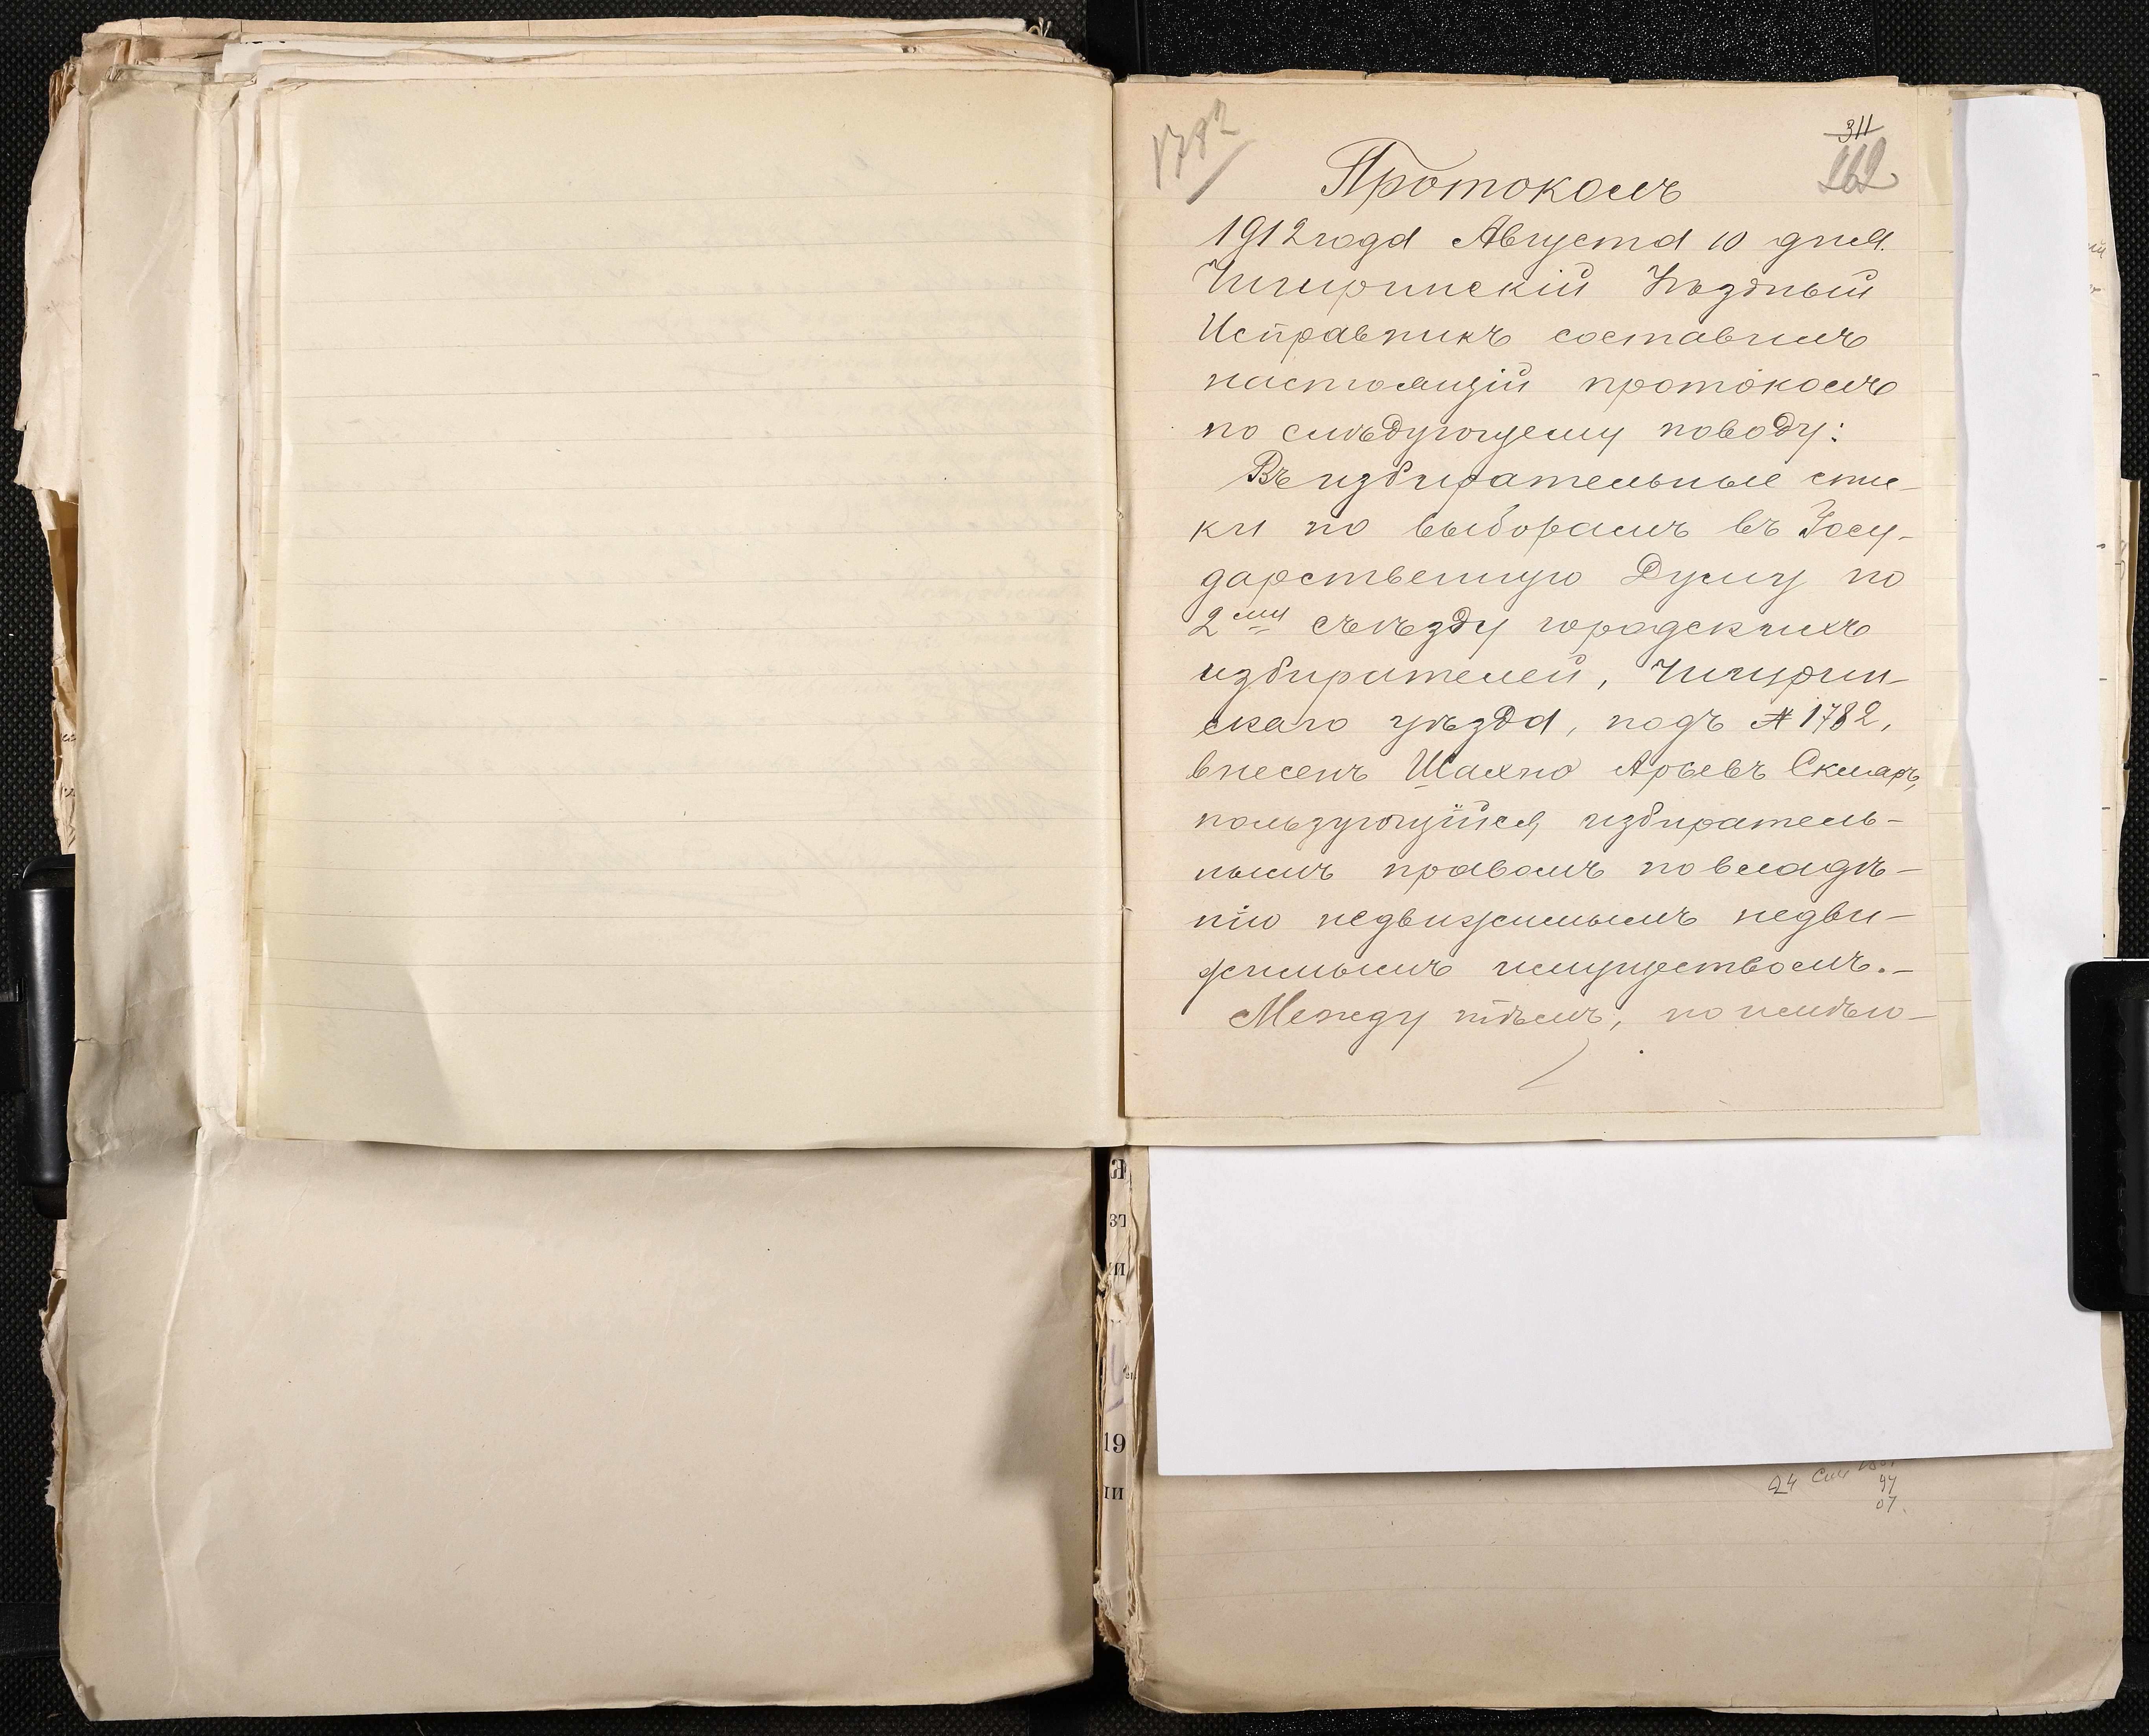 1782
311
262
Протоколъ
1912 года Августа 10 дня.
Чигиринскій Уѣздный
Исправникъ составилъ
настоящій протоколъ
по слѣдующему поводу:
Въ избирательные спис-
ки по выборамъ въ Госу-
дарственную Думу по
2му съѣзду городскихъ
избирателей, Чигирин-
скаго уѣзда, подъ № 1782,
внесенъ Шахно Арьевъ Скляръ,
пользующійся избиратель-
нымъ правомъ по владѣ-
нію недвижимымъ недви-
жимымъ имуществомъ.-
Между тѣмъ, по имѣю-
19
24
97
07.